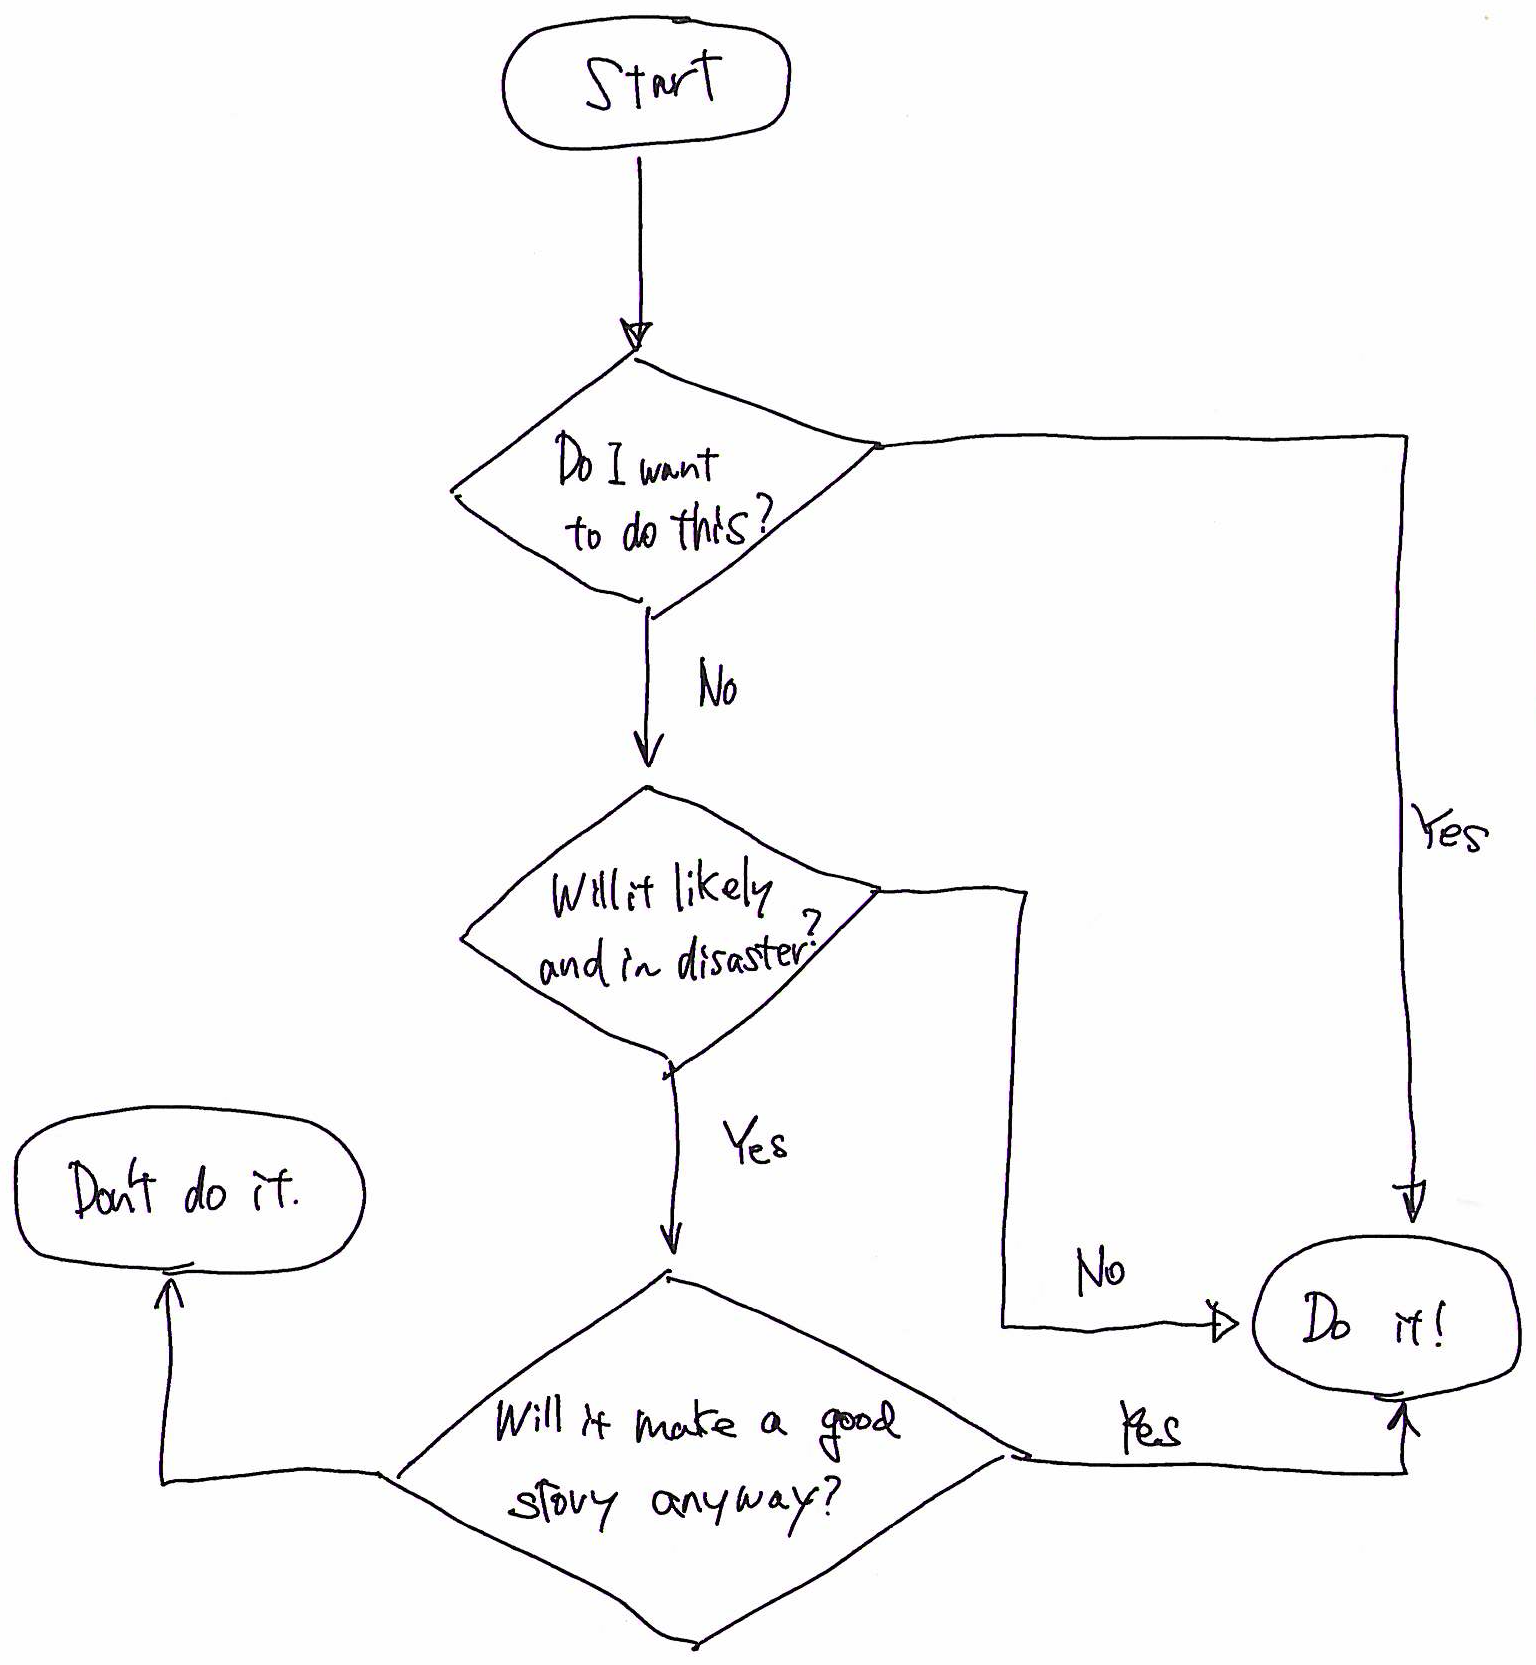 Start
Do I want
to do this?
No
Yes
Will it likely
and in disaster?
Yes
Don't do it.
No
Do it!
Will it make a good
story anyway?
Yes